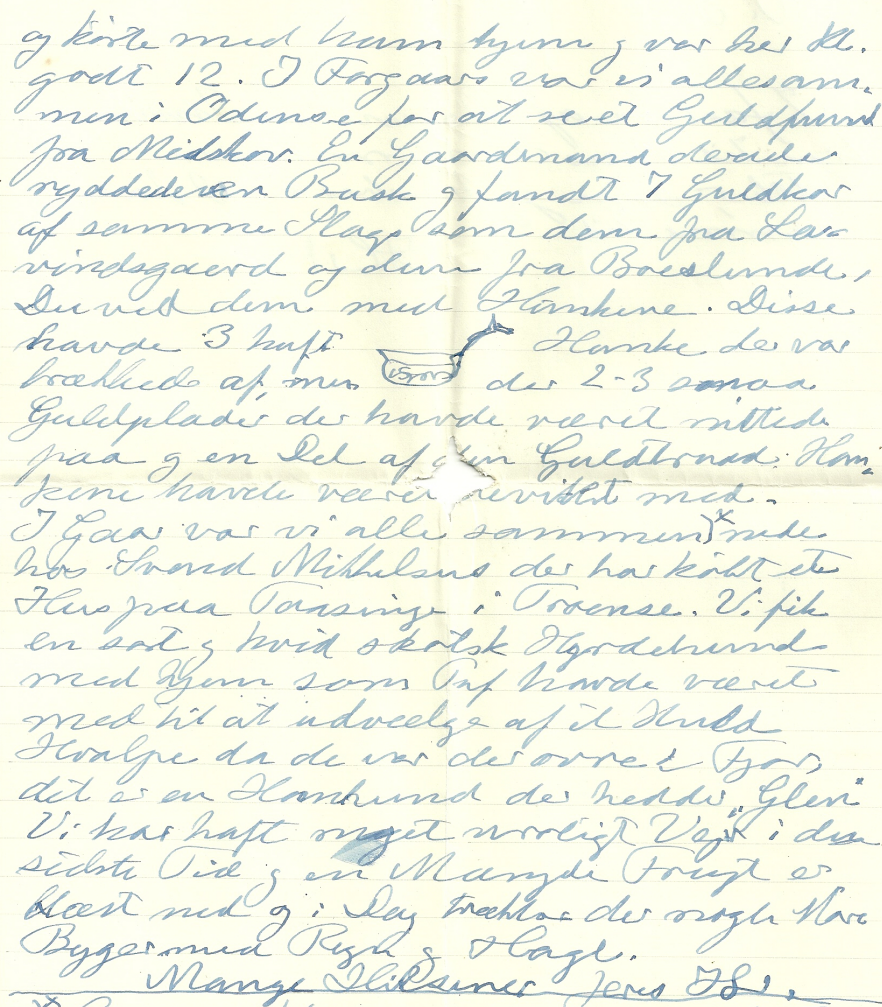 og körte med ham hjem g var her Kl.
godt 12. I Forgaars var vi allesam-
men i Odense for at se et Guldfund
fra Midskov. En Gaardmand dernede
ryddede en Busk g fandt 7 Guldkar
af samme Slags som dem fra La-
vindsgaard og dem fra Boeslunde,
Du ved dem med Hankene. Disse
havde 3 haft Hanke der var
brækkede af, men der 2-3 smaa
Guldplader der havde været nittede
paa g en Del af den Guldtraad Han-
kene havde været beviklet med.
I Gaar var vi alle sammen)x nede
hos Svend Mikkelsens der har købt et
Hus paa Taasinge i Troense. Vi fik
en sort g hvid skotsk Hyrdehund
med hjem som Tuf havde været
med til at udvælge af et Kuld
Hvalpe da de var derovre i Fjor,
det er en Hanhund der hedder "Glen"
Vi har haft meget uroligt Vejr i den
sidste Tid g en Mængde Frugt er
blæst ned og i Dag trækker der nogle
Byger med Regn g Hagl.
Mange Hilsener Jeres